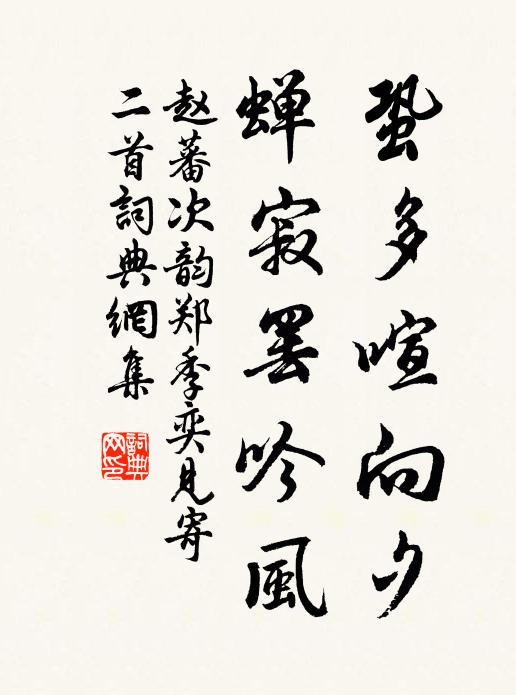 蛩多喧向夕
蝉寂罢吟風
赵蕃次韵郑季奕见寄
二首詞典網集
詞典网印